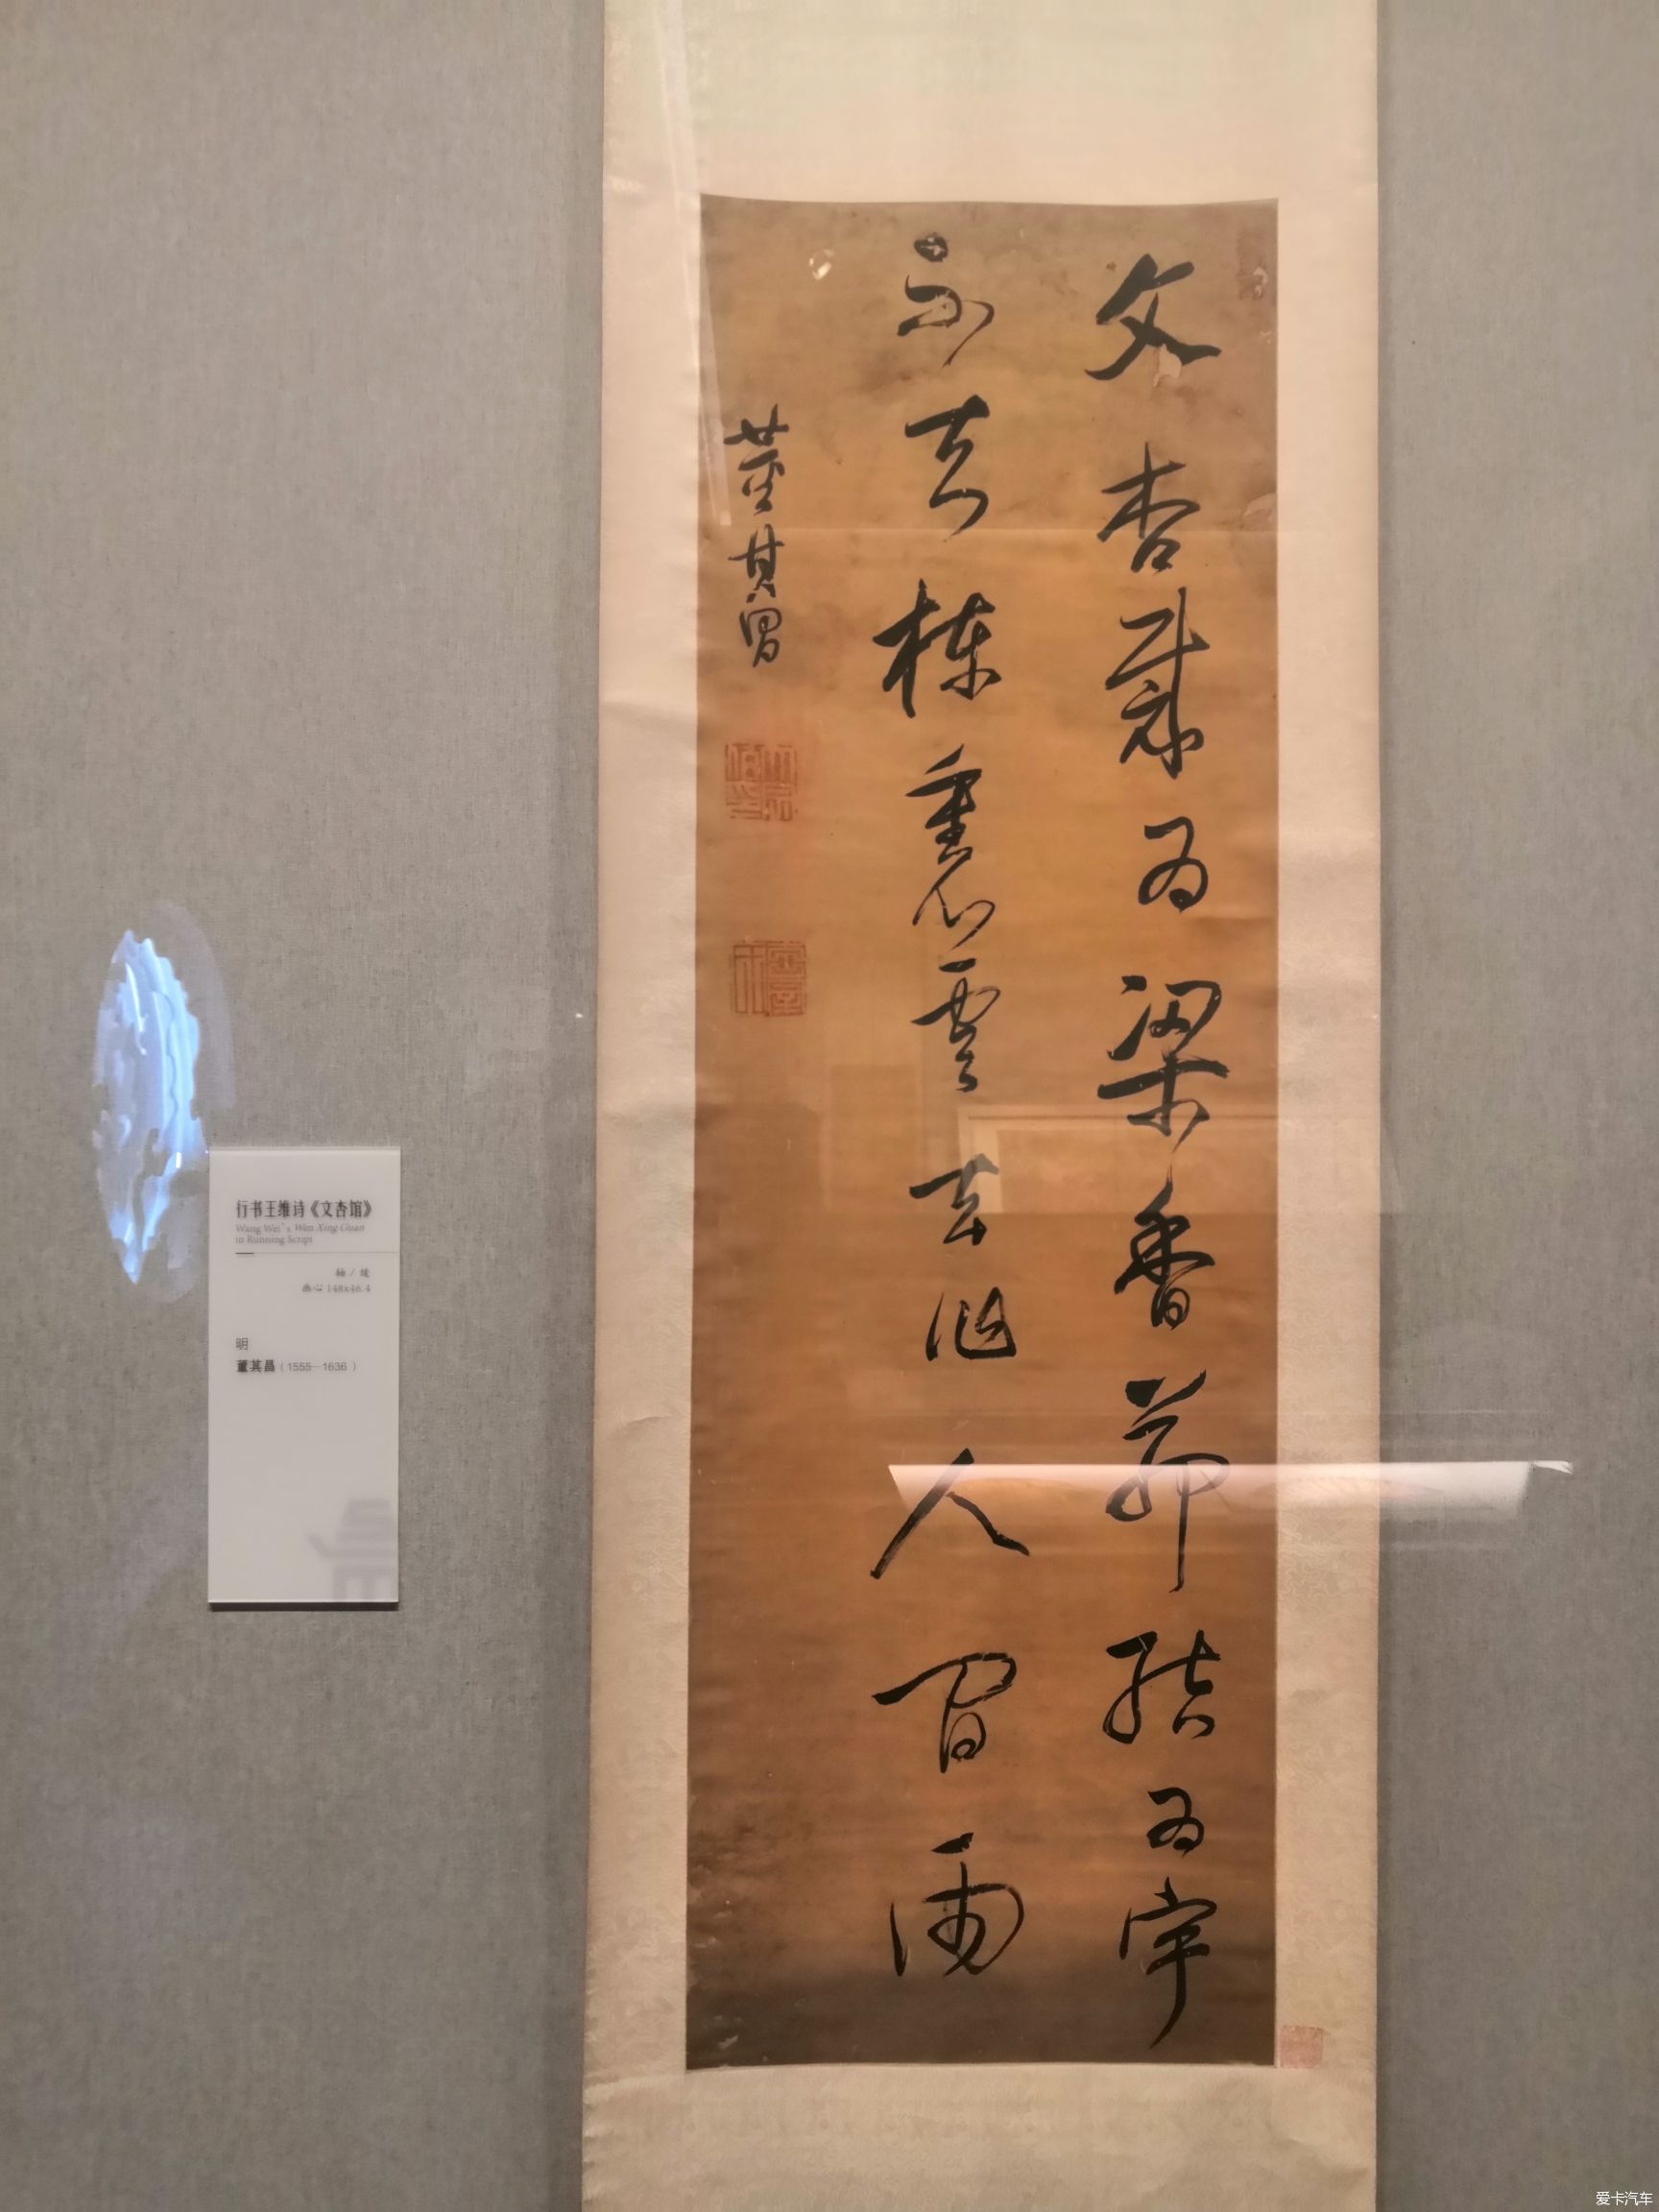 文杏裁為梁香茅結為宇
不知棟裏雲去作人間雨
董其昌
行书王维诗《文杏馆》
Wang Wei's Wen Xing Guan
in Running Script
轴 / 绫
画心 148x46.4
明
董其昌（1555—1636 ）
爱卡汽车